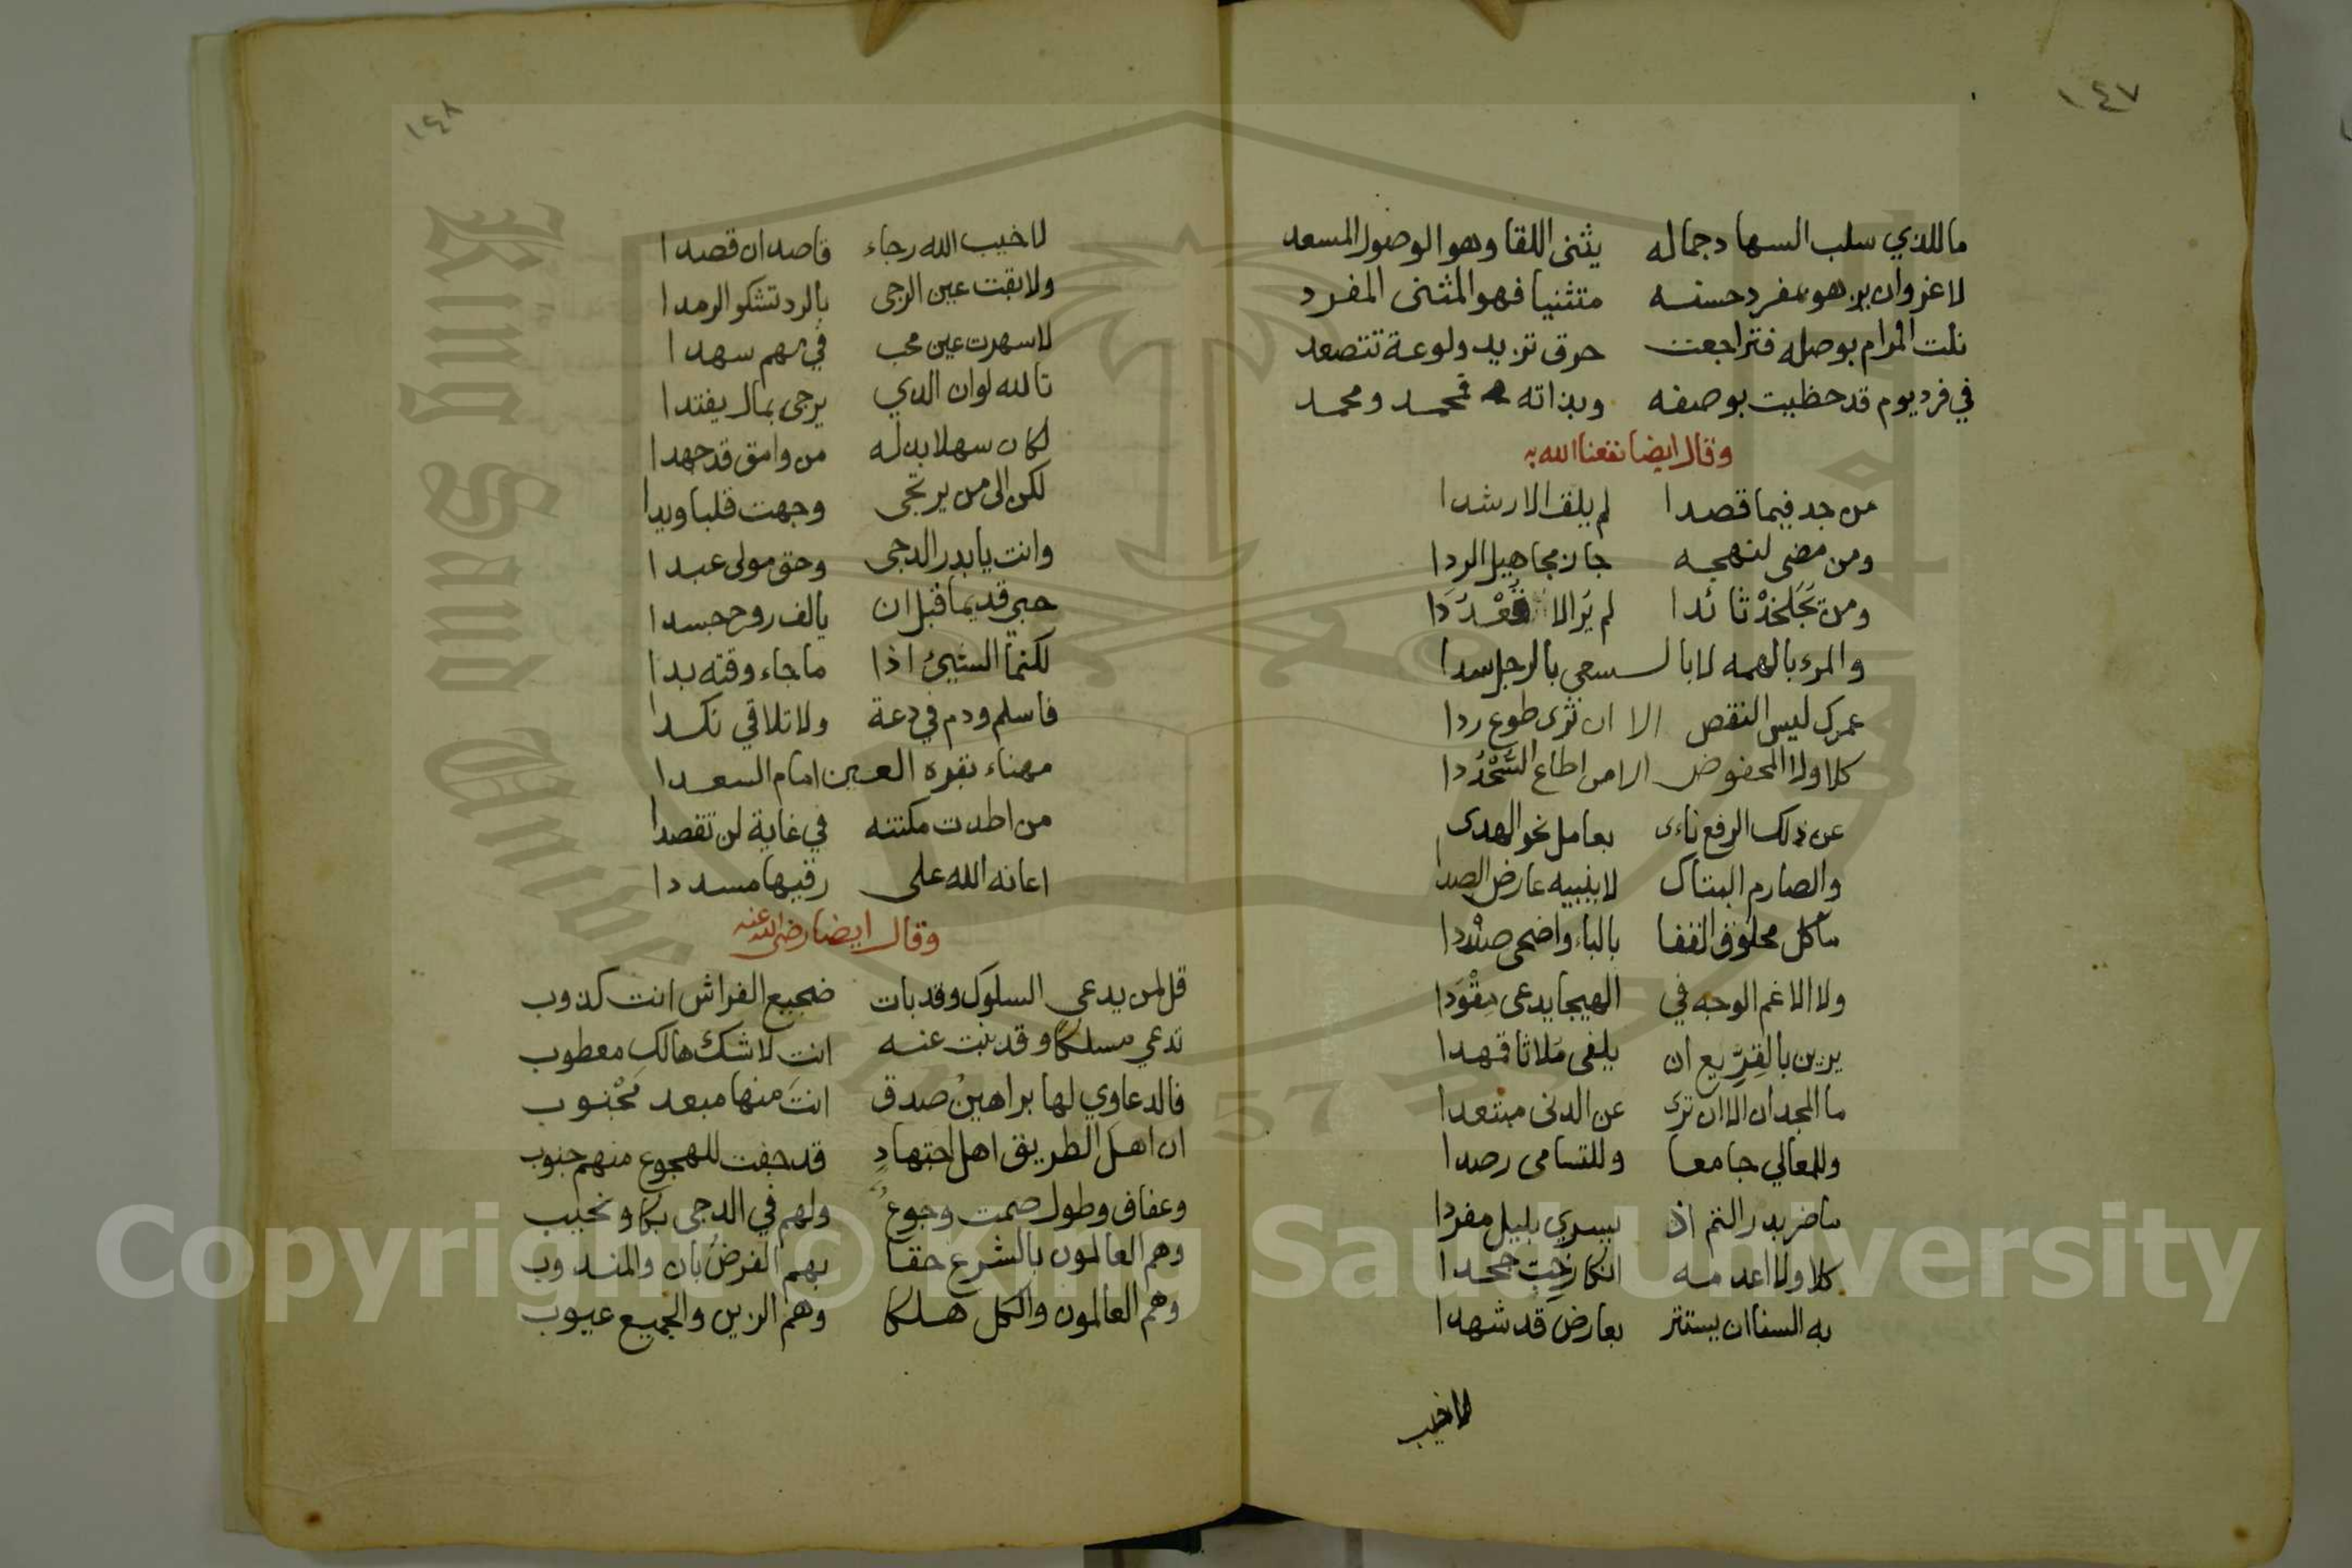 ١٤٧
ما للذي سلب السهاد جماله يثنى اللقا وهو الوصول المسعد
لا غزوان يزهو بمفرد حسنه متثنيا فهو المثنى المفرد
نلت المرام بوصله فتراجعت حرق تزيد ولوعة تتصعد
في فرد يوم قد حظيت بوصفه وبذاته فمحمد ومحمد
وقال ايضا نفعنا الله به
من جد فيما قصدا لم يلف الا رشدا
ومن مضى لنهجه جاز مجاهيل الردا
ومن تجلخذ ثائدا لم ير الا قعددا
والمرء بالهمه لا بالسعي بالرجل سدا
عمرك ليس النقص الا ان ترى طوع ردا
كلا ولا المخفوض الا من اطاع
عن ذلك الرفع ناءى بعامل نحو الهدى
والصارم البتاك لا ينبيه عارض الصدا
ما كل محلوق القفا بالباء واضحى
ولا الاغم الوجه في الهيجا يدعى مقودا
يزين بالقريع ان يلفى ملاثا قهدا
ما المجد ان الا ان ترى عن الدنى مبتعدا
وللمعالي جامعا وللتسامى رصدا
ما ضر بدر التم اذ يسري بليل مفردا
كلا ولا اعدمه انكار خب جحدا
به السنا ان يستتر بعارض قد شهدا
لاخيب
١٤٨
لا خيب الله رجاء قاصد ان قصدا
ولا بقت عين الرجى بالرد تشكو الرمدا
لا سهرت عين محب في بهم سهدا
تالله لو ان الذي يرجى بمال يفتدا
لكان سهلا بدله من وامق قد جهدا
لكن الى من يرتجى وجهت قلبا ويدا
وانت يا بدر الدجى وحق مولى عبدا
حبي قديما قبل ان يالف روح جسدا
لكنما الشيئ اذا ما جاء وقته بدا
فاسلم ودم في دعة ولا تلاقي نكدا
مهناء بقرة العين امام السعدا
من اطدت مكنته في غاية لن تقصدا
اعانه الله على رقيها مسددا
وقال ايضا رضى الله عنه
قل لمن يدعي السلوك وقد بات ضجيع الفراش انت كذوب
تدعي مسلكا وقد بنت عنه انت لا شك هالك معطوب
فالدعاوي لها براهين صدق انت منها مبعد مجنوب
ان اهل الطريق اهل اجتهاد قد جفت للهجوع منهم جنوب
وعفاف وطول صمت وجوع ولهم في الدجى بكا ونحيب
وهم العالمون بالشرع حقا بهم الفرض بان والمندوب
وهم العالمون والكل هلكا وهم الزين والجميع عيوب
Copyright © King Saud University
King Saud University
1957